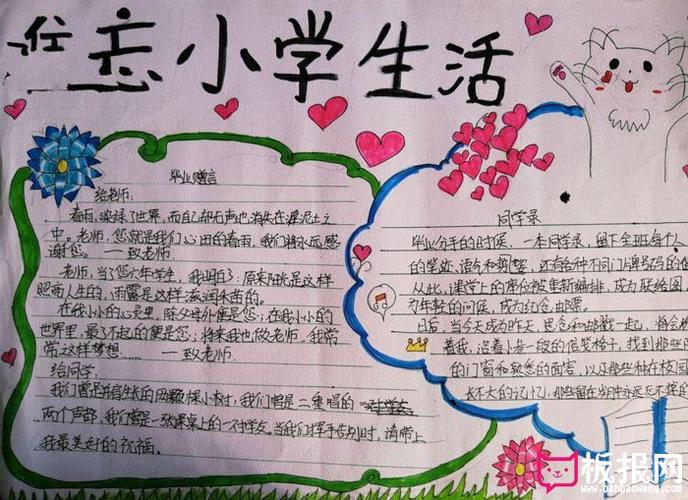 忘小学生活
毕业赠言
给老师:
春雨,染绿了世界,而自己却无声地消失在泥土之
中。老师,您就是我们心田的春雨,我们将永远感
谢您。——致老师
老师,当了您六年学生,我明白了:原来阳光是这样
照耀人生的,雨露是这样滋润禾苗的。
在我小小的心灵里,除父母外便是您;在我小小的
世界里,最了不起的便是您;将来我也做老师,我常
常这样梦想……——致老师
给同学:
我们曾是并肩生长的两颗棵小树,我们曾是二重唱的
两个声部,我们曾是一张课桌上的一对学友,当我们挥手告别时,请带上
我最美好的祝福。
同学录
毕业分手的时候,一本同学录,留下全班每个人
的笔迹、语气和剪影,还有各种不同门牌号码的
从此,课堂上的座位被重新编排,成为联络图
为年轻的问候,成为红色邮票
日后,当今天成为昨天,思念和邮戳一起,将会
着我,沿着小楷一段的信笺格子,找到那些
的门窗和熟悉的面容,以及那些种在校园
长不大的记忆,那些留在岁月中永远忘不掉的
板报网
www.banbaowang.com